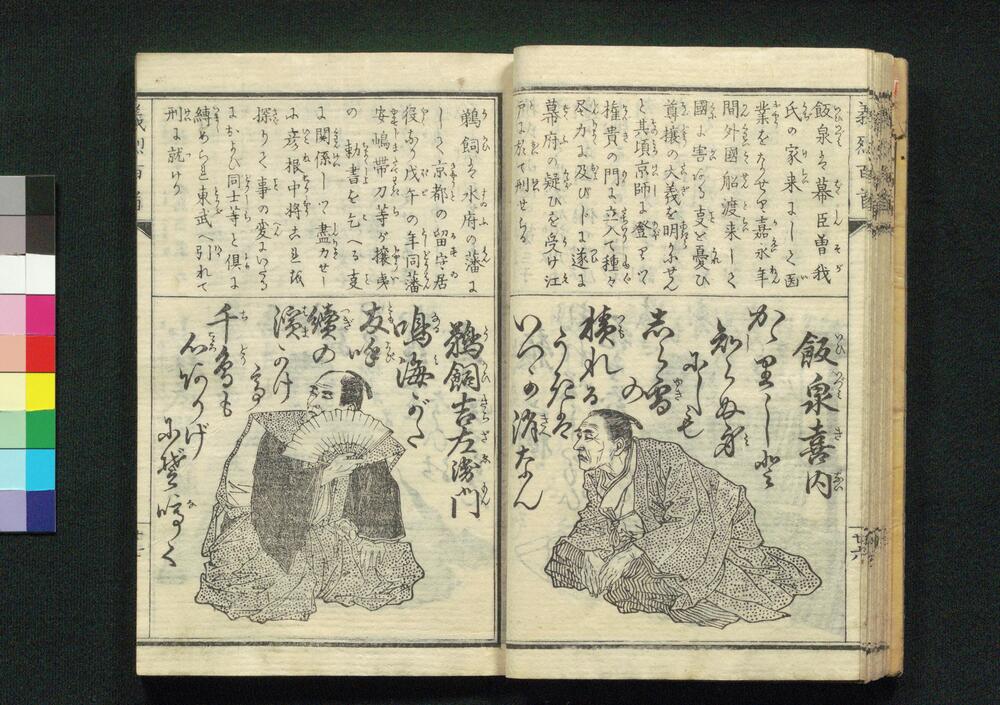 義烈百首
飯泉は幕臣曽我
氏の家来にして画
業をなりせり嘉永年
間外國船渡来して
國に害あるを憂ひ
尊攘の大義を明かにせん
と其頃京師に登りて
権貴の門に立入て種々
尽力に及びしに遂に
幕府の疑ひを受け江
戸に於て刑せらる
飯泉喜内
知らぬ身
にしも
しら雪
の
積れる
うさは
いつか消なん
廿六
鵜飼は水府の藩に
して京都の留守居
役たり戊午の年同藩
安嶋帯刀等が攘夷
の勅書を乞へる支
に関係して盡力せし
に彦根中将是を
探りて事の変にいたる
におよび同士等と倶に
縛められ東武へ引れて
刑に就けり
鵜飼吉左衛門
鳴海がた
友呼
續の
濱かけ
て
千鳥も